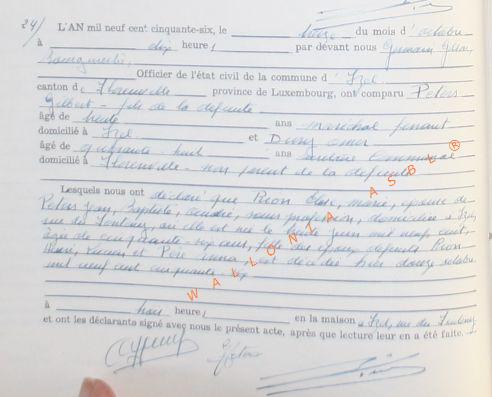 24/ L'AN mil neuf cent cinquante-six, le treize du mois d'octobre
à dix heures, par devant nous Germain
Bourgmestre, Officier de l'état civil de la commune d' Izel,
canton de Florenville province de Luxembourg, ont comparu Peters
Gilbert - fils de la défunte
âgé de trente ans maréchal ferrant
domicilié à Izel et Omer
âgé de quarante-huit ans communal
domicilié à Florenville - non parent de la défunte
Lesquels nous ont déclaré que Picon marie, épouse de
Peters Jean, Baptiste, sans profession, domiciliée à Izel,
rue du où elle est née le juin mil neuf cent,
âgée de cinquante-six ans, fille des époux défunts Picon
Lucien et Anna, est décédée hier douze octobre
mil neuf cent cinquante-six
à heures, en la maison à Izel, rue du
et ont les déclarants signé avec nous le présent acte, après que lecture leur en a été faite.
WALLONIA ASBL ®